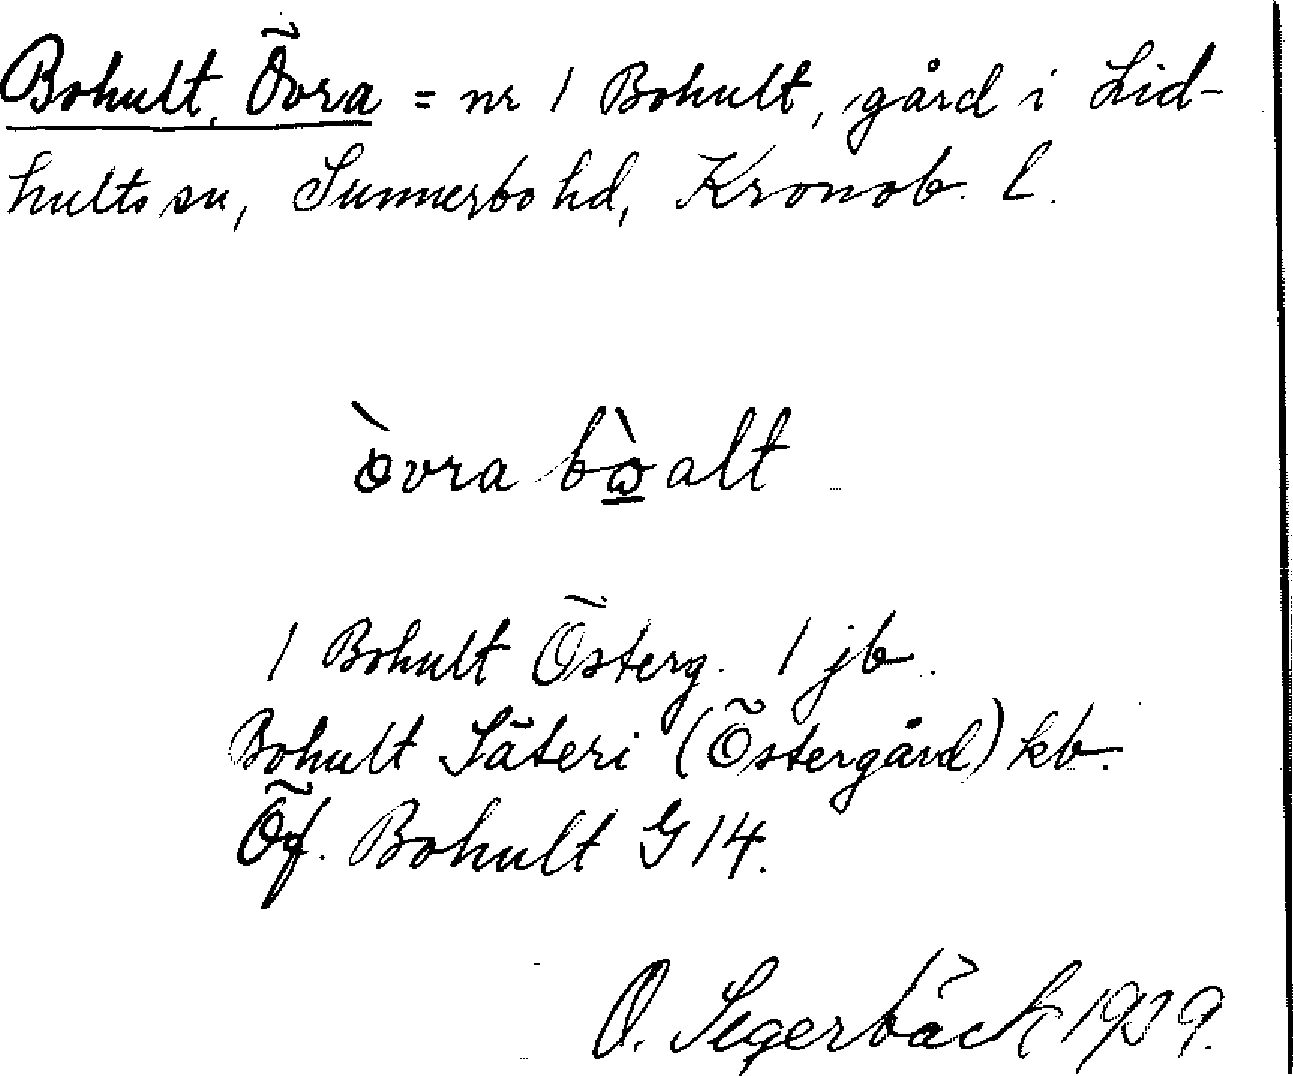 Bohult, Övra = nr 1 Bohult, gård i Lid-
hults sn, Sunnerbo hd, Kronob. l.
òvra bὼ̲alt
1 Bohult Österg. 1 jb.
Bohult Säteri (Östergård) kb.
Öf. Bohult G 14.
O. Segerbäck 1929.